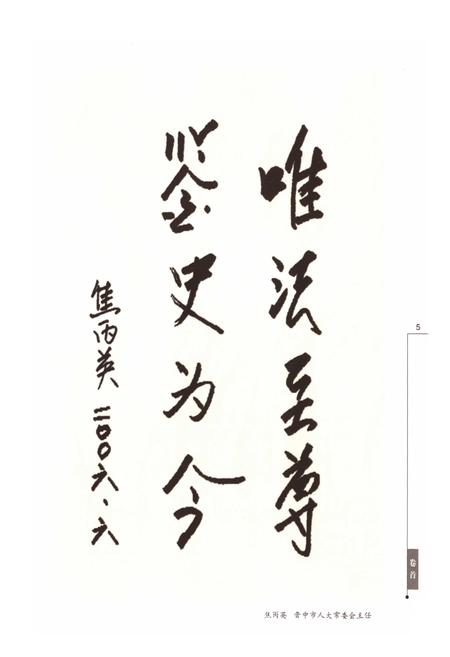 唯法至尊
鉴史为今
焦丙英 二〇〇六·六
5
卷首
焦丙英 晋中市人大常委会主任